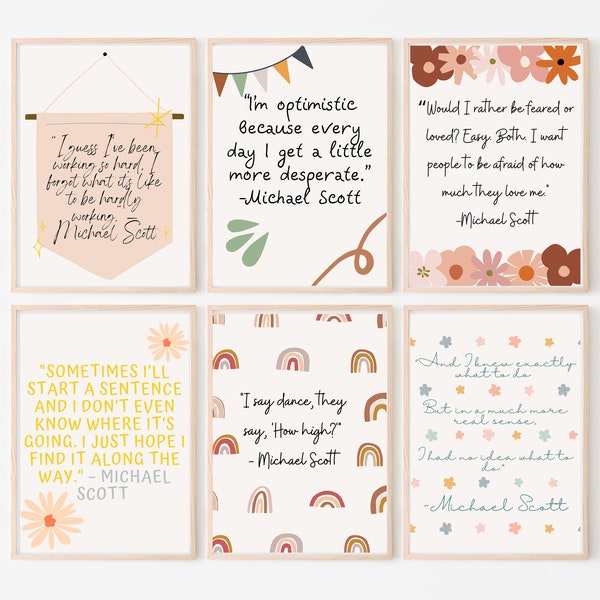 "I guess I've been
working so hard, I
forgot what it's like
to be hardly
working. –
Michael Scott
"I'm optimistic
Because every
day I get a little
more desperate."
-Michael Scott
"Would I rather be feared or
loved? Easy. Both. I want
people to be afraid of how
much they love me."
-Michael Scott
"SOMETIMES I'LL
START A SENTENCE
AND I DON'T EVEN
KNOW WHERE IT'S
GOING. I JUST HOPE I
FIND IT ALONG THE
WAY." – MICHAEL
SCOTT
"I say dance, they
say, 'How high?'"
- Michael Scott
And I knew exactly
what to do
But in a much more
real sense,
I had no idea what to
do."
-Michael Scott